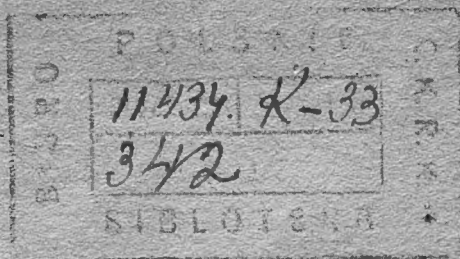 POLSKIE
BIURO
11434. K-33
342
BIBLOTEKA